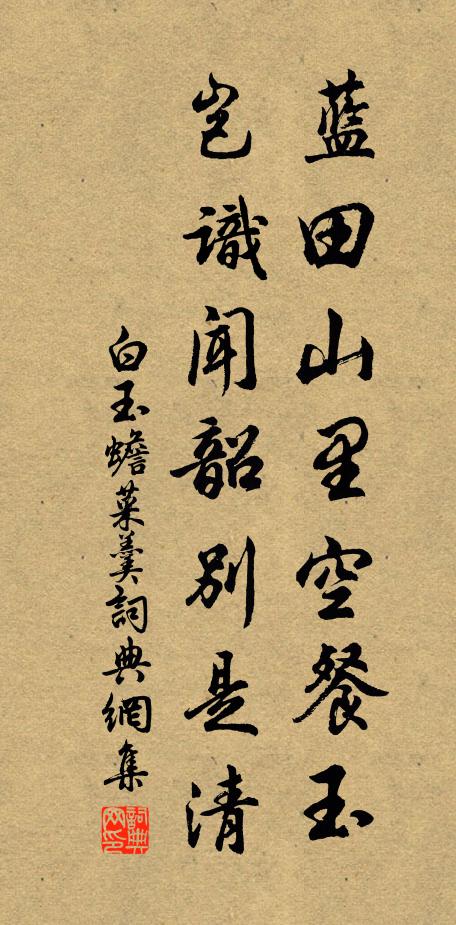 蓝田山里空餐玉
岂識闻韶別是清
白玉蟾菜羹詞典網集
詞典
网印